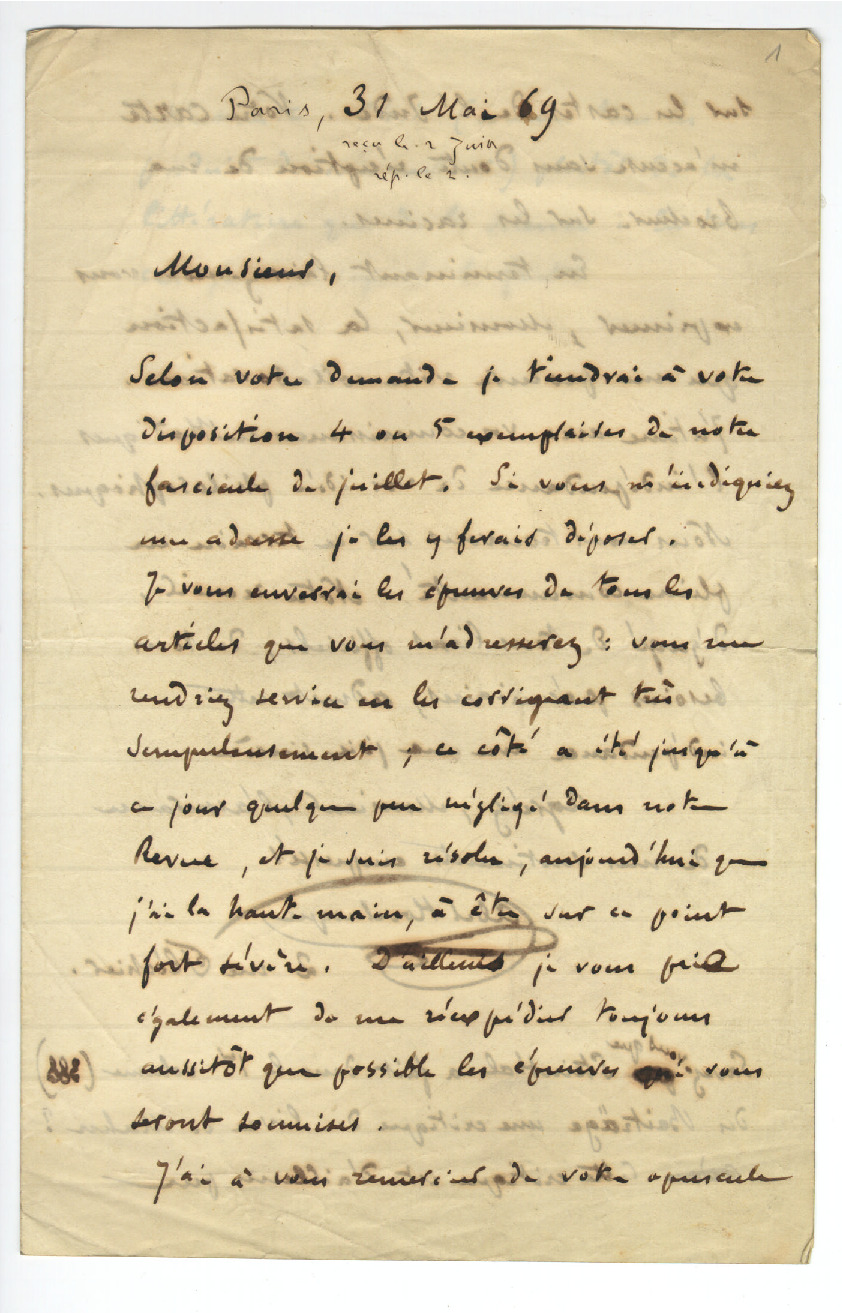 1
Paris, 31 Mai 69
reçu le 2 Juin
rép. le 2.
Monsieur,
Selon votre demande je tiendrai à votre
disposition 4 ou 5 exemplaires de notre
fascicule de juillet. Si vous m'indiquiez
une adresse je les y ferais déposer.
Je vous enverrai les épreuves de tous les
articles que vous m'adresserez : vous me
rendriez service en les corrigeant très
scrupuleusement ; ce côté a été jusqu'à
ce jour quelque peu négligé dans notre
Revue, et je suis résolu, aujourd'hui que
j'ai la haute main, à être sur ce point
fort sévère. D'ailleurs je vous prie
également de me réexpédier toujours
aussitôt que possible les épreuves qui vous
seront soumises.
J'ai à vous remercier de votre opuscule
(388)